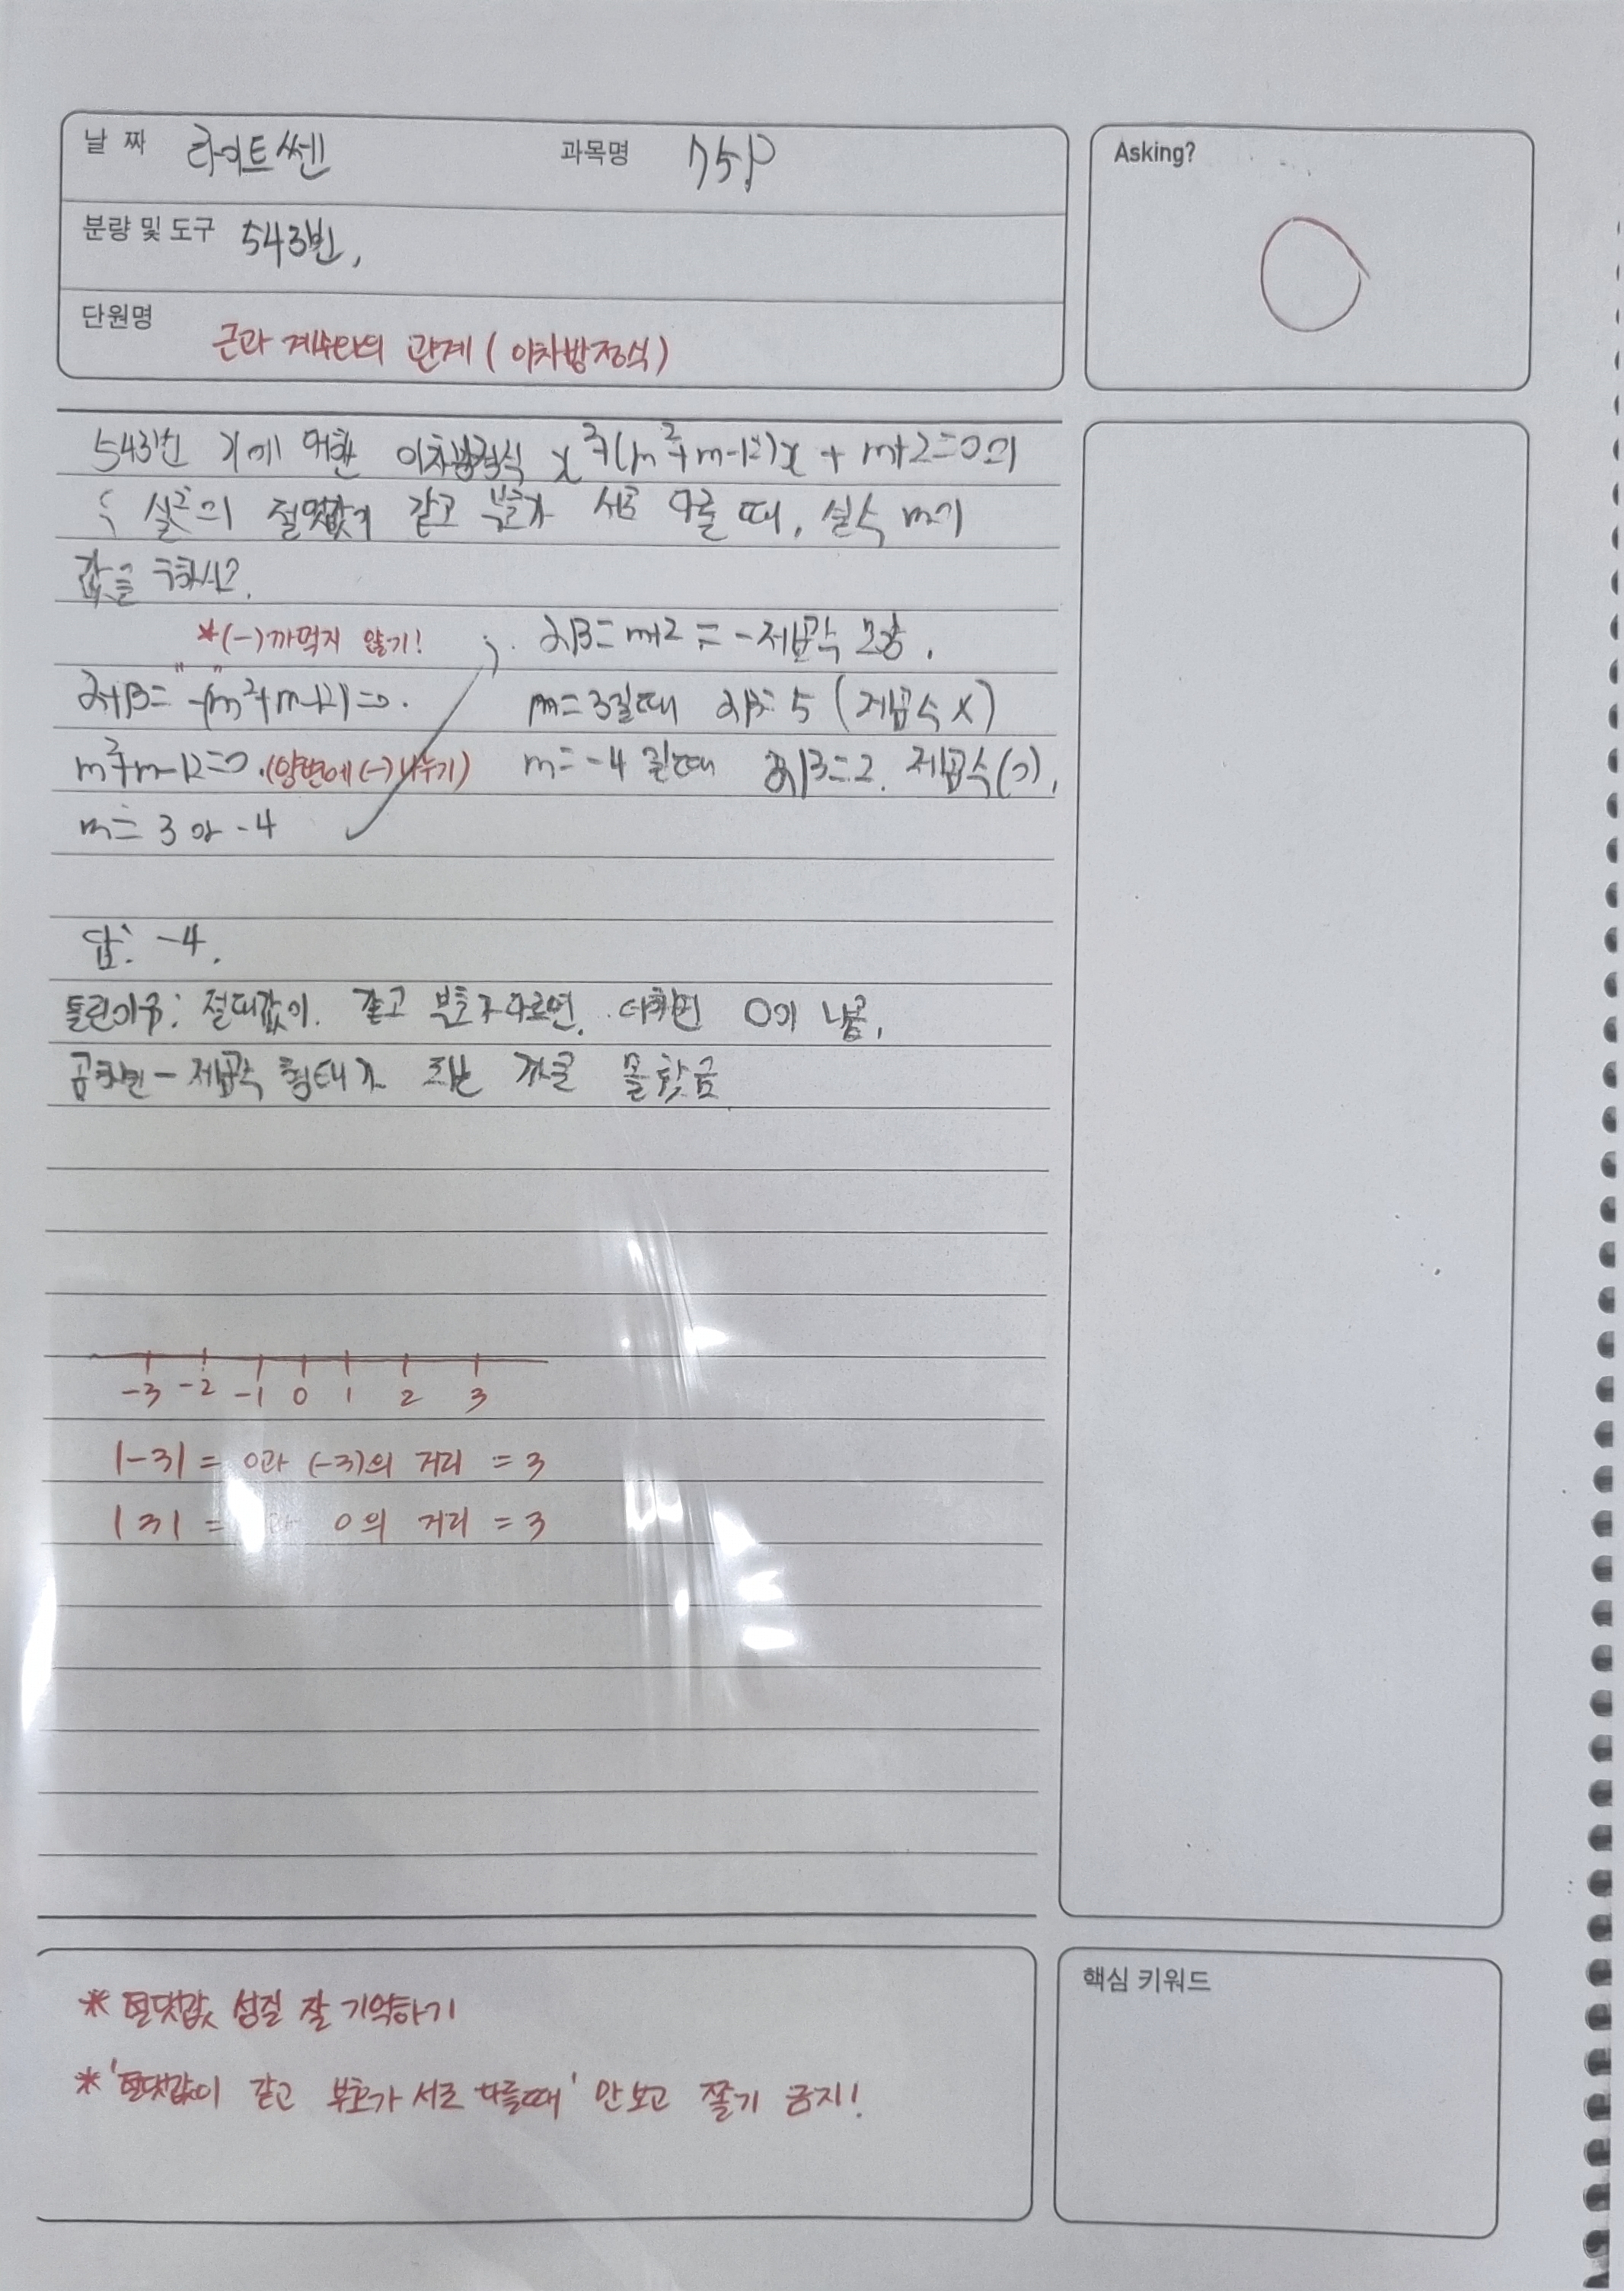 날 짜 라이트쎈 과목명 75P
Asking?
분량 및 도구 543번,
단원명 근과 계수와의 관계 (이차방정식)
543번 x에 대한 이차방정식 x²+(m²+m-12)x + m+2=0의
두 실근의 절댓값이 같고 부호가 서로 다를 때, 실수 m의
값을 구하시오.
*(-)까먹지 않기!
α+β= "-"(m²+m-12)=0.
m²+m-12=0.(양변에 (-) 나누기)
m= 3 or -4
αβ= m+2 = -제곱수 모양.
m=3일때 αβ=5 (제곱수 X)
m= -4 일때 αβ=2. 제곱수(O),
답: -4.
틀린이유: 절대값이. 같고 부호가 다르면. 더하면 0이 나옴,
곱하면 - 제곱수 형태가 되는 것을 몰랐음
-3 -2 -1 0 1 2 3
|-3| = 0과 (-3)의 거리 = 3
|3| = 0의 거리 = 3
* 절댓값 성질 잘 기억하기
* '절댓값이 같고 부호가 서로 다를때' 안보고 풀기 금지!
핵심 키워드